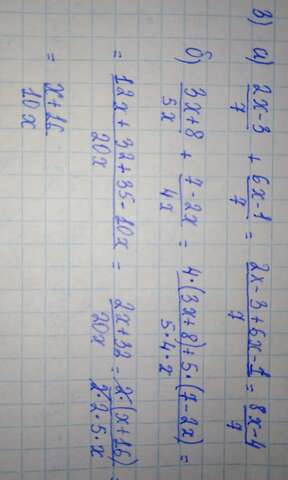 3) a) (2x-3)/7 + (6x-1)/7 = (2x-3+6x-1)/7 = (8x-4)/7
б) (3x+8)/5x + (7-2x)/4x = (4·(3x+8)+5·(7-2x))/(5·4·x) =
= (12x+32+35-10x)/20x = (2x+32)/20x = (2·(x+16))/(2·2·5·x) =
= (x+16)/10x